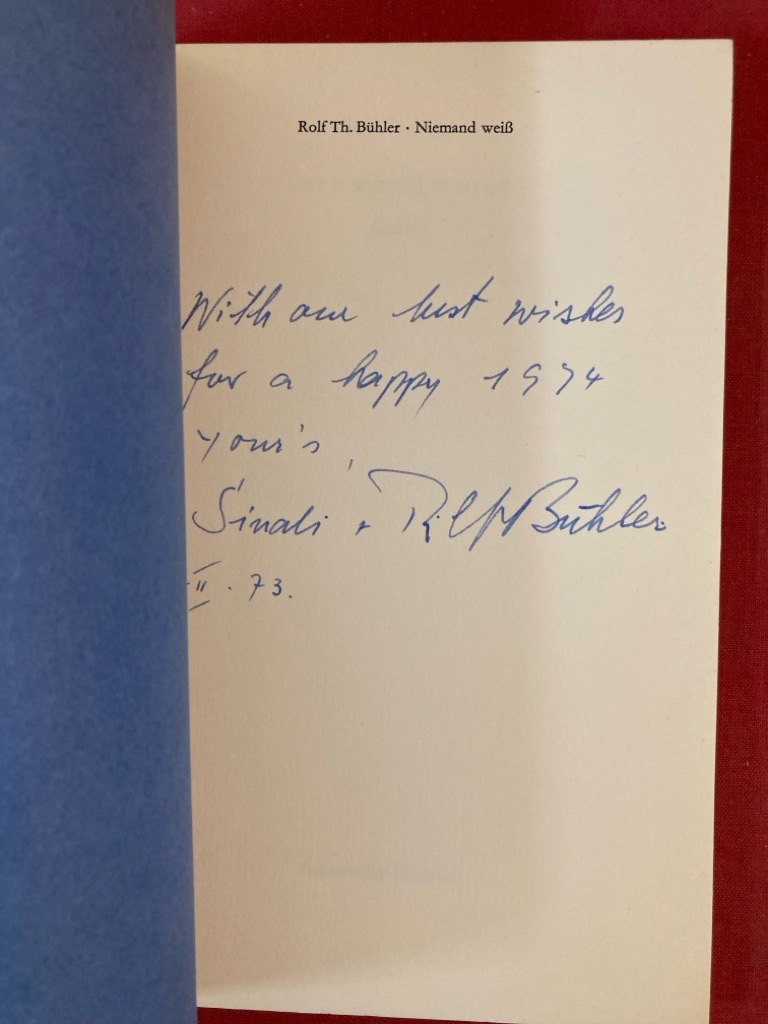 Rolf Th. Bühler · Niemand weiß
With our best wishes
for a happy 1974
your's
Sinali + Rolf Bühler
II. 73.